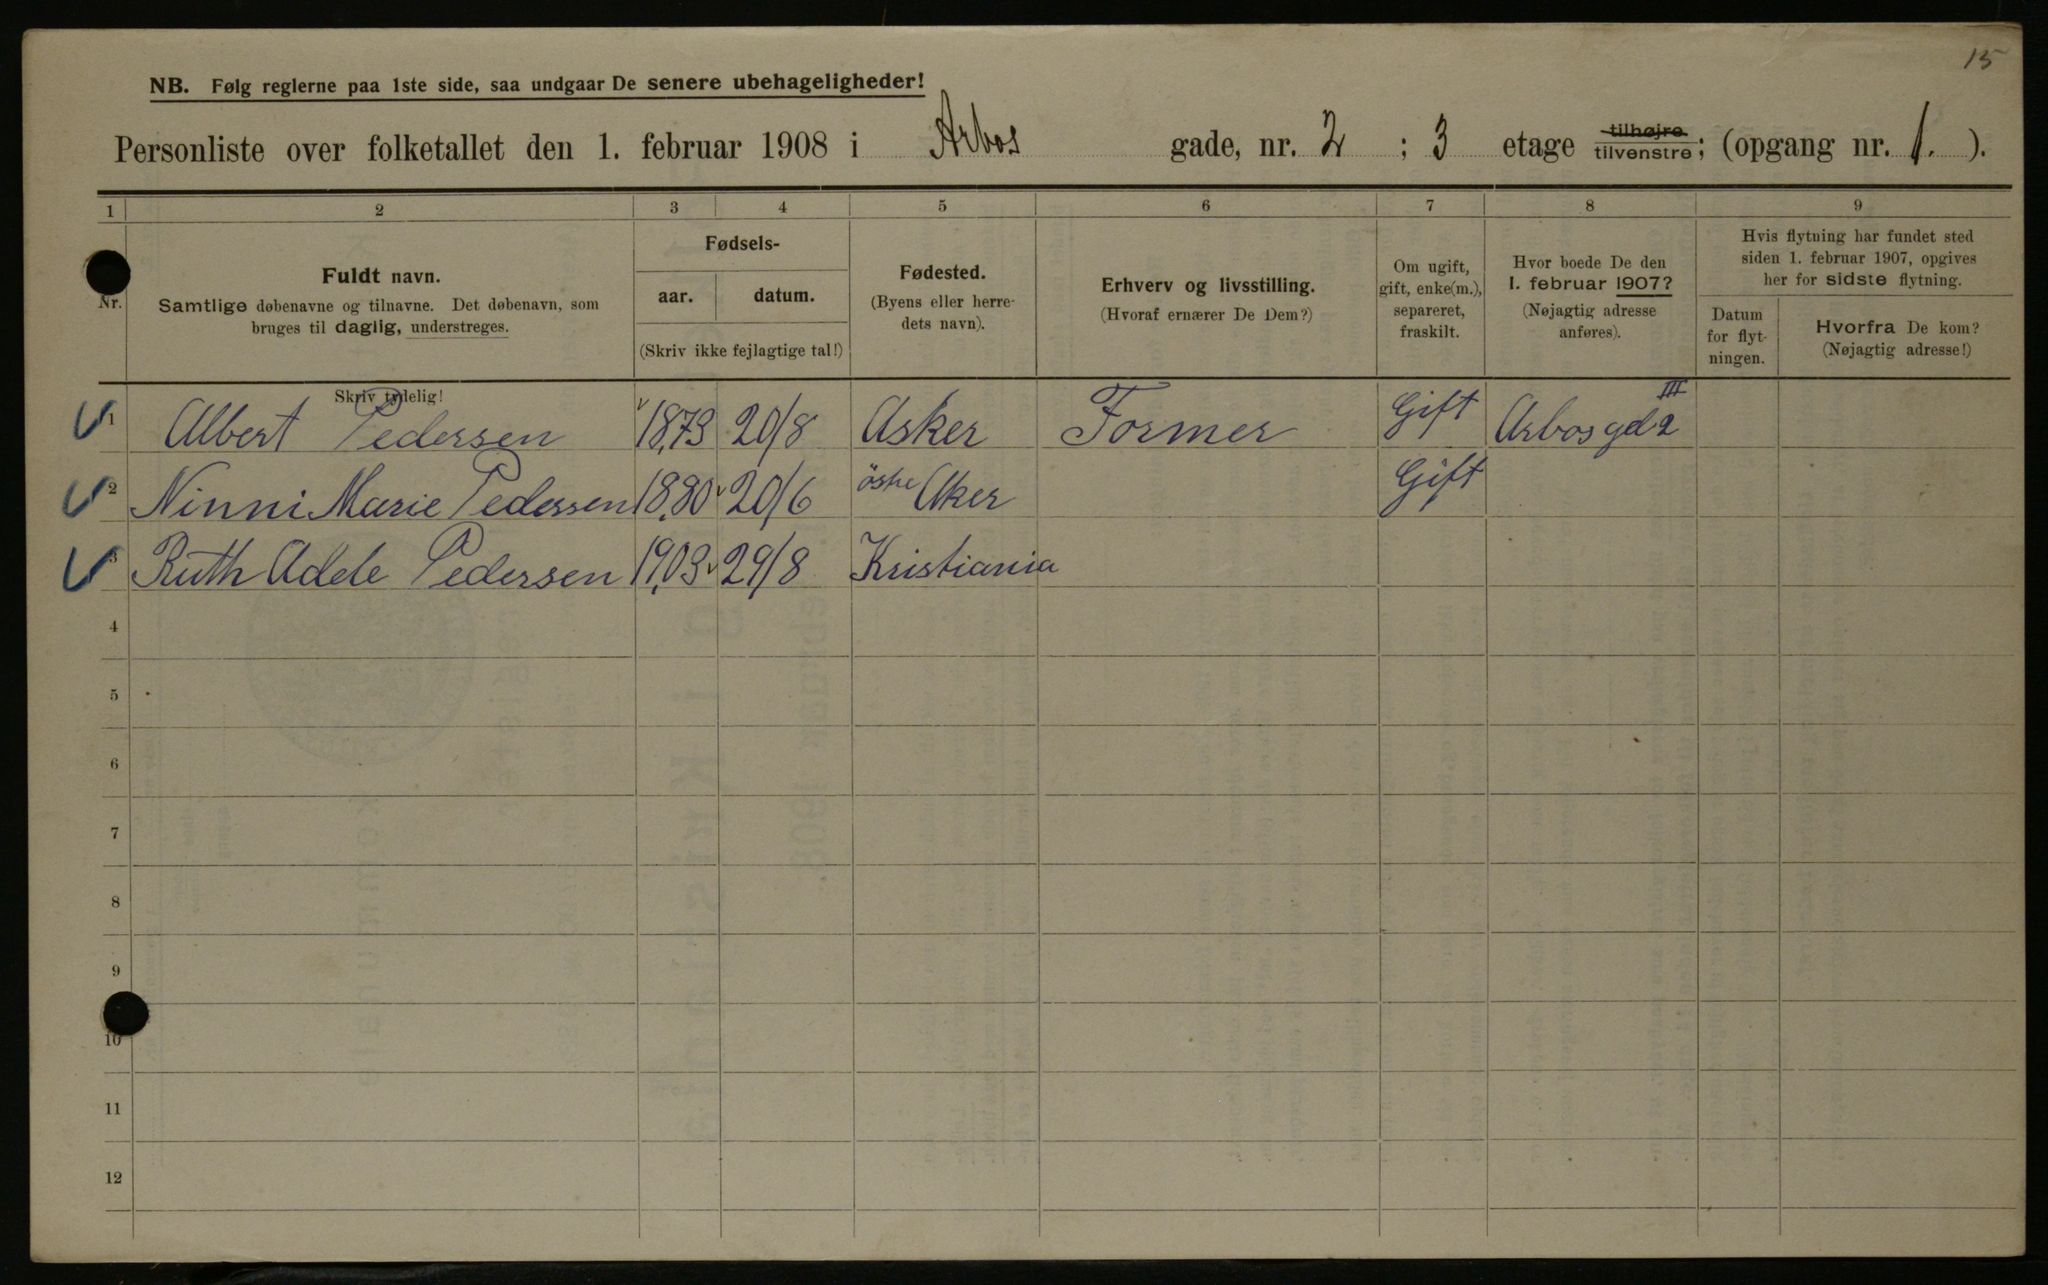 15
NB. Følg reglerne paa 1ste side, saa undgaar De senere ubehageligheder!
Personliste over folketallet den 1. februar 1908 i Arbos gade, nr. 2 ; 3 etage tilhøjre tilvenstre; (opgang nr. 1. ).
1 2 3 4 5 6 7 8 9
Nr.
Fuldt navn.
Samtlige døbenavne og tilnavne. Det døbenavn, som
bruges til daglig, understreges.
Skriv tydelig!
Fødsels-
aar. datum.
(Skriv ikke fejlagtige tal!)
Fødested.
(Byens eller herre-
dets navn).
Erhverv og livsstilling.
(Hvoraf ernærer De Dem?)
Om ugift,
gift, enke(m.),
separeret,
fraskilt.
Hvor boede De den
1. februar 1907?
(Nøjagtig adresse
anføres).
Hvis flytning har fundet sted
siden 1. februar 1907, opgives
her for sidste flytning.
Datum
for flyt-
ningen.
Hvorfra De kom?
(Nøjagtig adresse!)
1 Albert Pedersen 1873 20/8 Asker Former Gift Arbosgd 2 III
2 Ninni Marie Pedersen 1880 20/6 östre Aker Gift
3 Ruth Adele Pedersen 1903 29/8 Kristiania
4
5
6
7
8
9
10
11
12